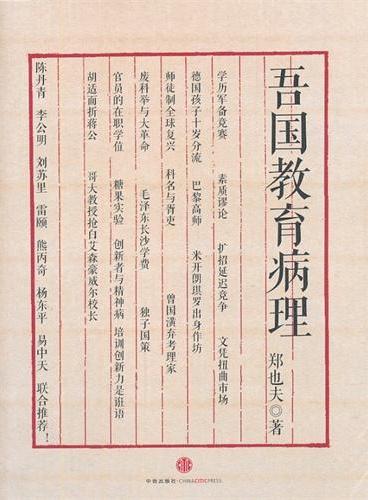 吾国教育病理
郑也夫◎著
学历军备竞赛 素质谬论 扩招延迟竞争 文凭扭曲市场
德国孩子十岁分流 巴黎高师 米开朗琪罗出身作坊
师徒制全球复兴 科名与胥吏 曾国潢弃考理家
废科举与大革命 毛泽东长沙学费 独子国策
官员的在职学位 糖果实验 创新者与精神病 培训创新力是诳语
胡适面折蒋公 哥大教授抢白艾森豪威尔校长
陈丹青 李公明 刘苏里 雷颐 熊丙奇 杨东平 易中天 联合推荐!
中信出版社·CHINACITICPRESS